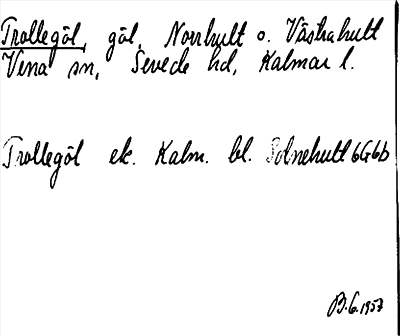 Trollegöl, göl, Norrhult o. Västrahult
Vena sn, Sevede hd, Kalmar l.
Trollegöl ek. Kalm. bl. Solnehult 6G6b
B.G. 1957